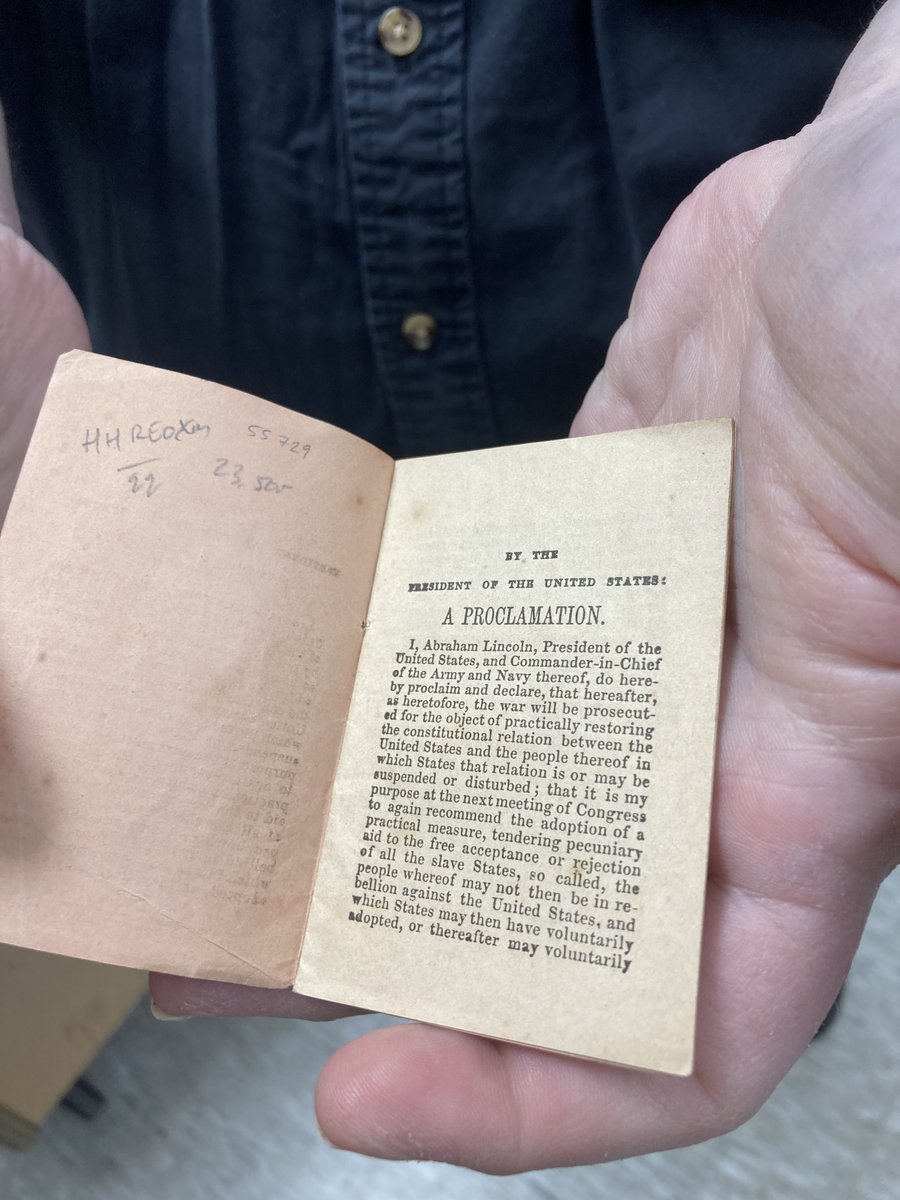 55729
BY THE
PRESIDENT OF THE UNITED STATES:
A PROCLAMATION.
I, Abraham Lincoln, President of the
United States, and Commander-in-Chief
of the Army and Navy thereof, do here-
by proclaim and declare, that hereafter,
as heretofore, the war will be prosecut-
ed for the object of practically restoring
the constitutional relation between the
United States and the people thereof in
which States that relation is or may be
suspended or disturbed; that it is my
purpose at the next meeting of Congress
to again recommend the adoption of a
practical measure, tendering pecuniary
aid to the free acceptance or rejection
of all the slave States, so called, the
people whereof may not then be in re-
bellion against the United States, and
which States may then have voluntarily
adopted, or thereafter may voluntarily